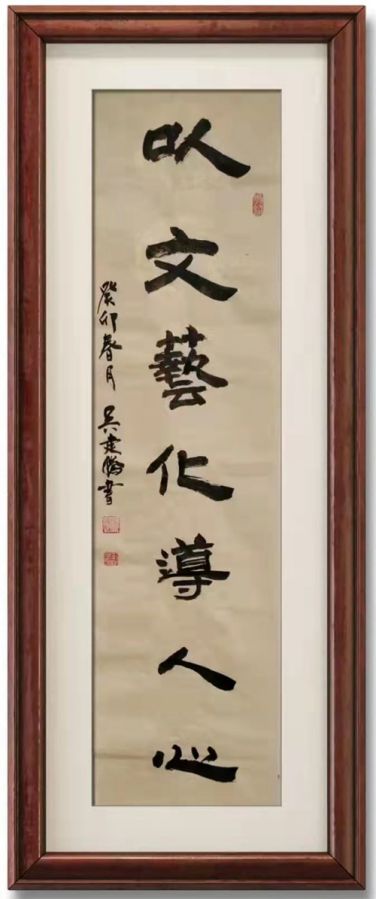 以文藝化導人心
癸卯春月 吴建勝書